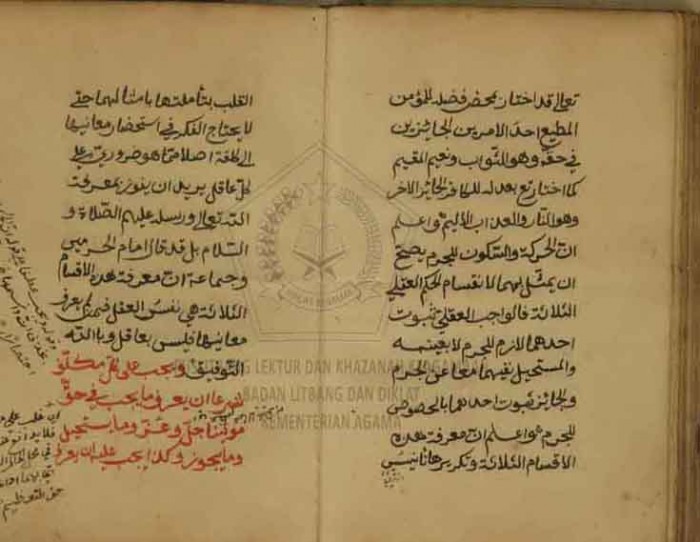 تعالى قد اختار بمحض فضله للمؤمن
المطيع احد الامرين الجائزين
في حقه وهو الثواب ونعيم المقيم
كما اختار تع بعدله للكافر الجائز الاخر
وهو النار والعذاب الاليم واعلم
ان الحركة والسكون للجرم يصح
ان يمثل بهما لاقسام الحكم العقلي
الثلاثة فالواجب العقلي ثبوت
احدهما لازم للجرم لا بعينه
والمستحيل نفيهما معا عن الجرم
والجائز ثبوت احدهما بالخصوص
للجرم واعلم ان معرفة هذه
الاقسام الثلاثة وتكريرها تانيس
القلب بتأملتها بامثالهما حتى
لا يحتاج الفكر في استحضار معانيها
الى كلفة اصلا مما هو ضروري على
كل عاقل يريد ان يفوز بمعرفة
الله تعالى ورسله عليهم الصلاة و
السلام بل قد قال امام الحرمين
وجماعة ان معرفة هذه الاقسام
الثلاثة هي نفس العقل فمن لم يعرف
معانيها فليس بعاقل وبالله
التوفيق ويجب على كل مكلف
شرعا ان يعرف ما يجب في حق
مولانا جل وعز وما يستحيل
وما يجوز وكذا يجب عليه ان يعرف
LEKTUR DAN KHAZANAH
BADAN LITBANG DAN DIKLAT
KEMENTERIAN AGAMA